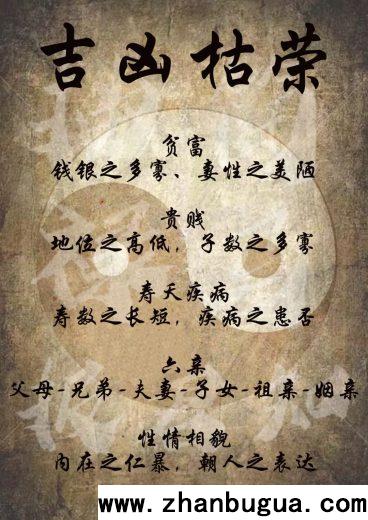 吉凶枯荣
贫富
钱银之多寡、妻性之美陋
贵贱
地位之高低，子数之多寡
寿夭疾病
寿数之长短，疾病之患否
六亲
父母-兄弟-夫妻-子女-祖亲-姻亲
性情相貌
内在之仁暴，朝人之表达
www.zhanbugua.com